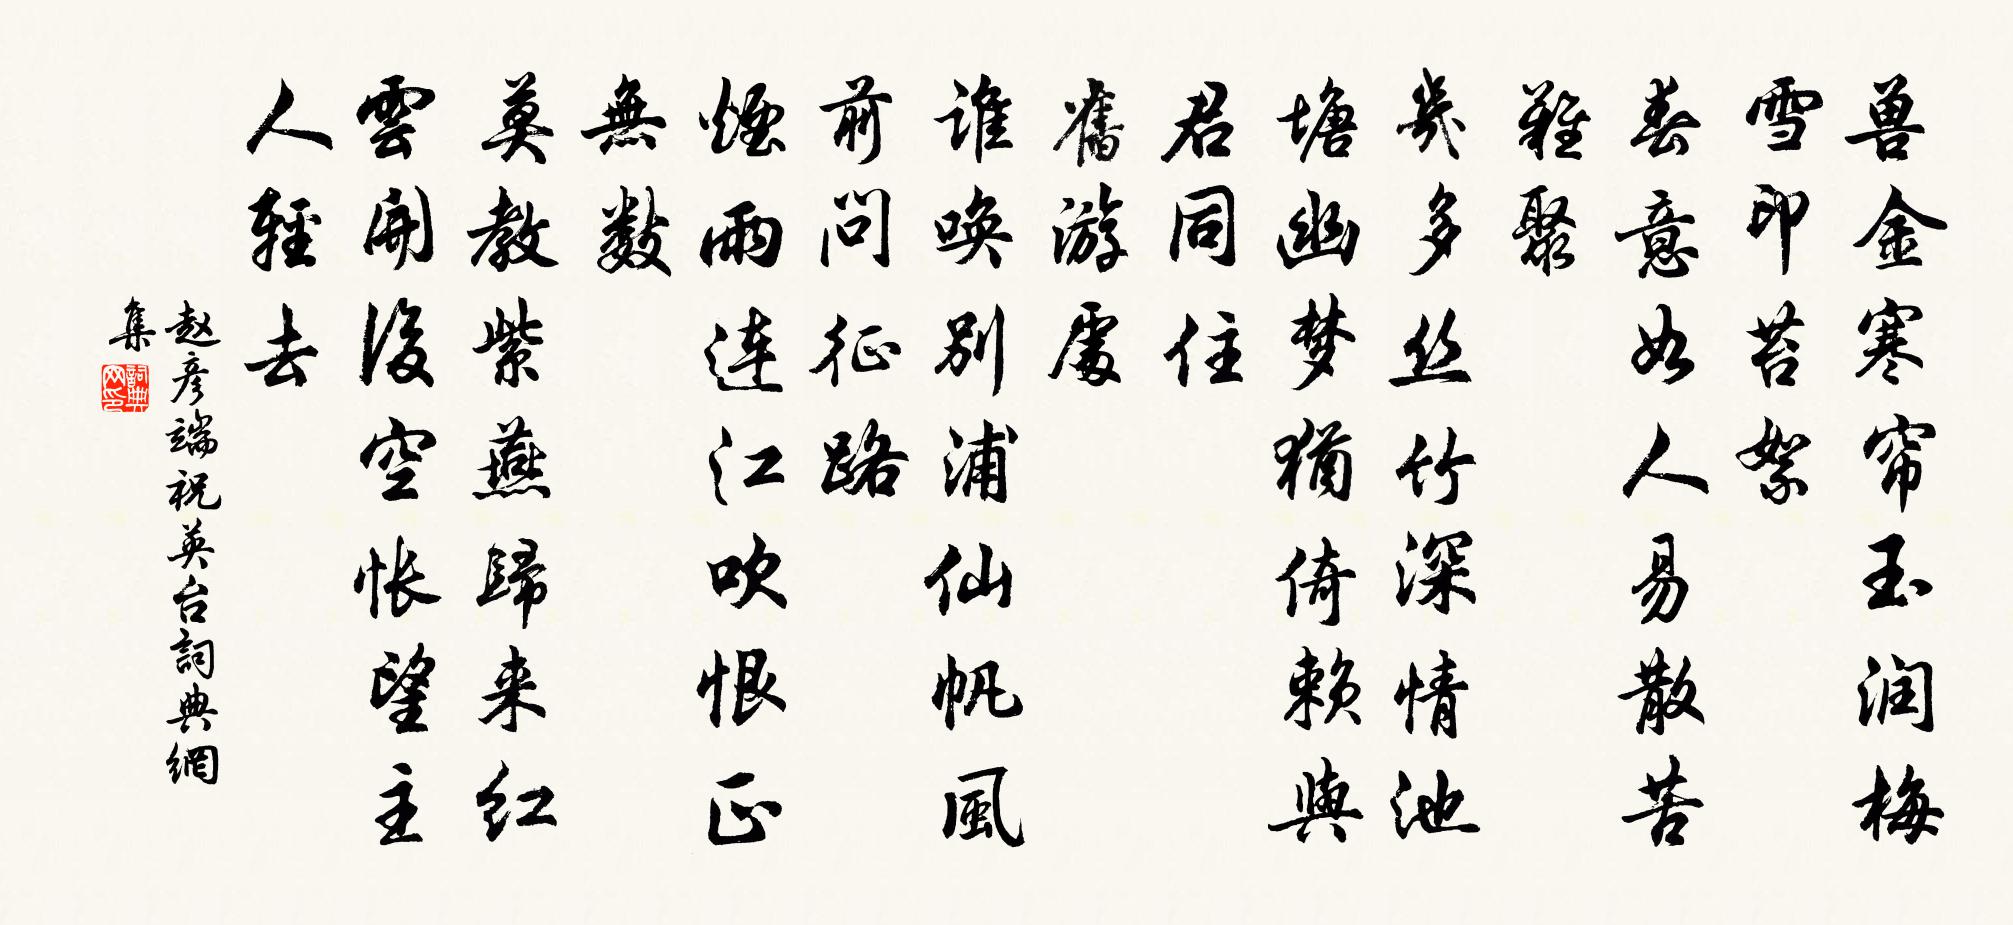 兽金寒帘玉润梅
雪印苔絮
春意如人易散苦
难聚
幾多丝竹深情池
塘幽梦犹倚赖與
君同住
舊游處
谁唤别浦仙帆風
前问征路
煙雨连江吹恨正
無数
莫教紫燕歸来红
雲開後空怅望主
人輕去
赵彦端祝英台詞典網
集
詞典网印